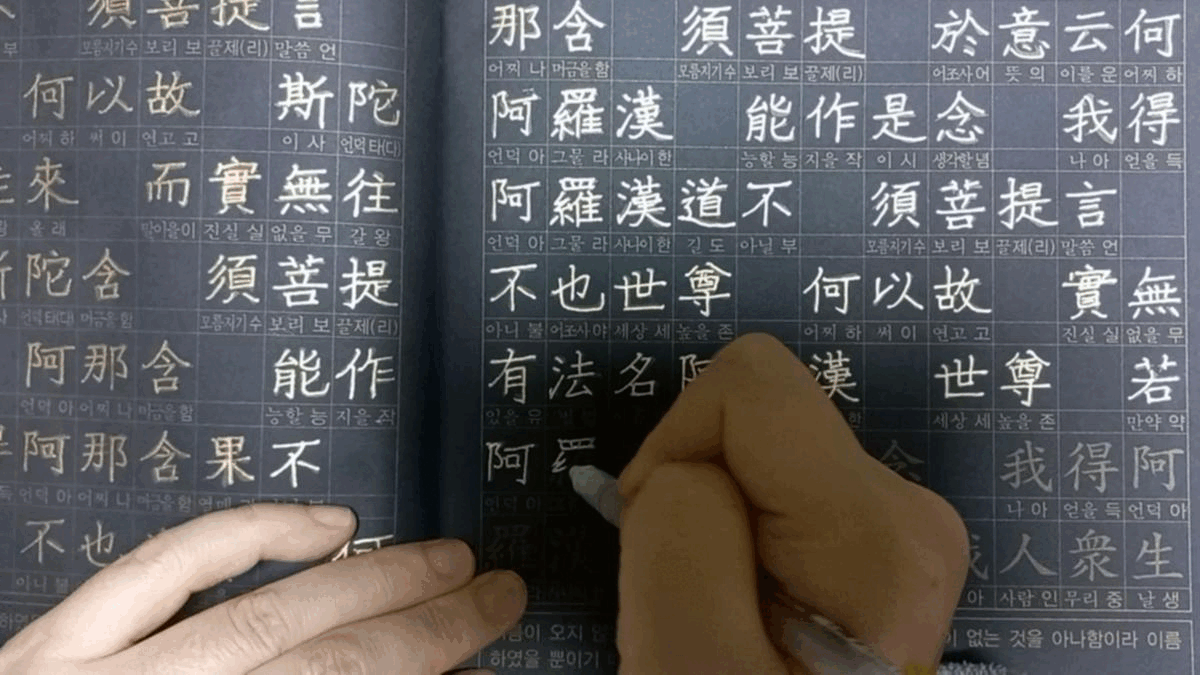 須菩提言
모름지기 수 보리 보 끌제(리) 말씀 언
何以故 斯陀
어찌 하 써 이 연고 고 이 사 언덕 타(다)
來 而實無往
올 래 말이을 이 진실 실 없을 무 갈 왕
陀含 須菩提
언덕 타(다) 머금을 함 모름지기 수 보리 보 끌제(리)
阿那含 能作
언덕 아 어찌 나 머금을 함 능할 능 지을 작
阿那含果不
언덕 아 어찌 나 머금을 함
不也
아니 불
那含 須菩提 於意云何
어찌 나 머금을 함 모름지기 수 보리 보 끌제(리) 어조사 어 뜻 의 이를 운 어찌 하
阿羅漢 能作是念 我得
언덕 아 그물 라 사나이 한 능할 능 지을 작 이 시 생각할 념 나 아 얻을 득
阿羅漢道不 須菩提言
언덕 아 그물 라 사나이 한 길 도 아닐 부 모름지기 수 보리 보 끌제(리) 말씀 언
不也世尊 何以故 實無
아니 불 어조사 야 세상 세 높을 존 어찌 하 써 이 연고 고 진실 실 없을 무
有法名 漢 世尊 若
있을 유 세상 세 높을 존 만약 약
阿 念 我得阿
언덕 아 나 아 얻을 득 언덕 아
羅漢 人衆生
사람 인 무리 중 날 생
이 오지 없는 것을 아나함이라 이름
하였을 뿐이기